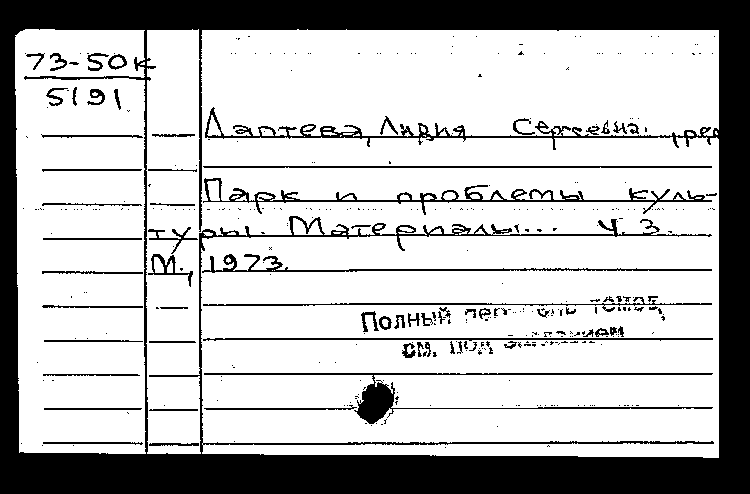 73-50к
5191
Лаптева, Лидия Сергеевна. , ред
Парк и проблемы куль-
туры. Материалы... Ч. 3.
М., 1973.
Полный томов,
см. под